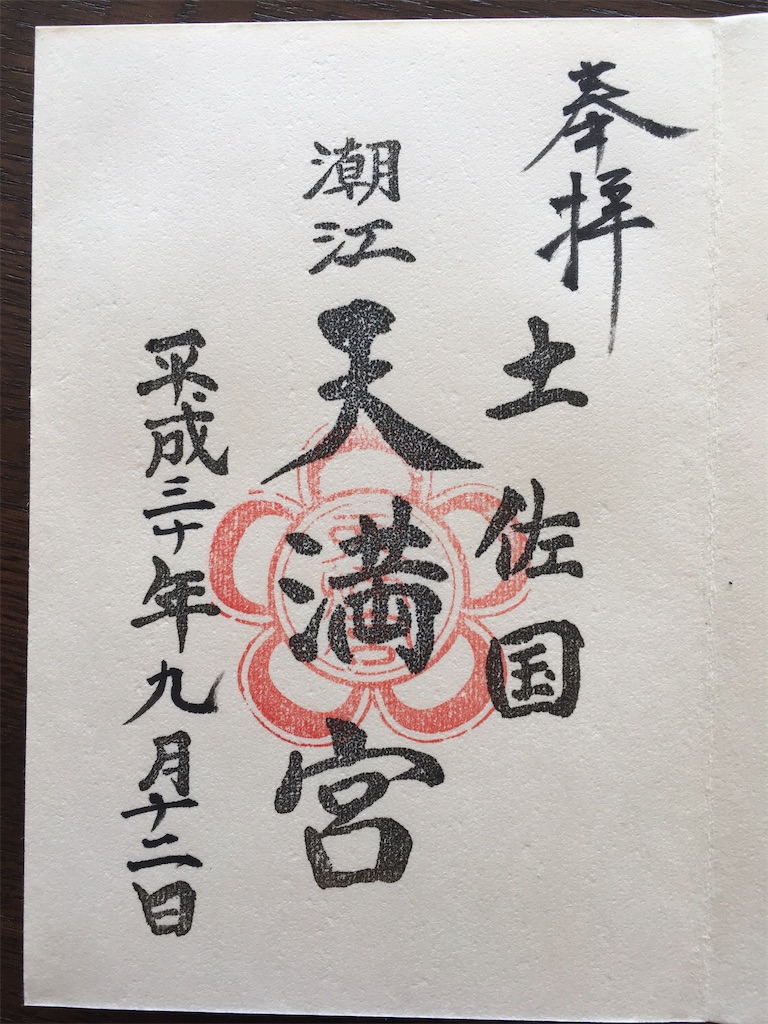 奉拝
土佐国
潮江天満宮
平成三十年九月十二日